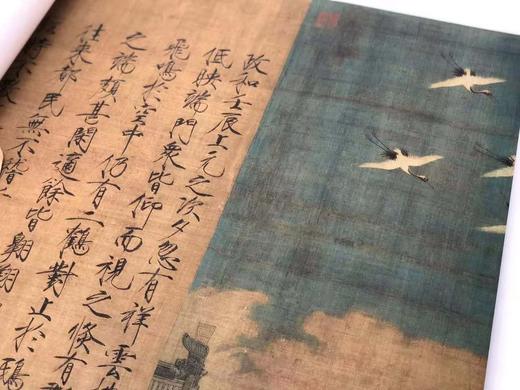 政和壬辰上元之次夕忽有祥雲
低映端門衆皆仰而視之倏有
飛鳴於空中仍有二鶴對止於鴟
之端頗甚閑適餘皆翱翔
往來都民無不稽